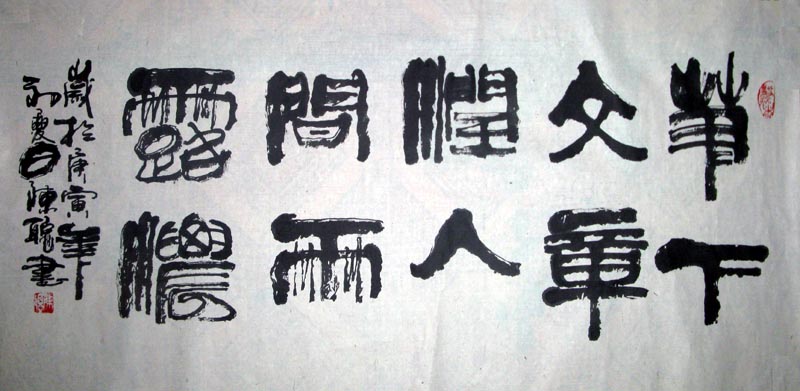 筆下
文章
潤人
間雨
露濃
歲於庚寅年
初夏日陳聰書